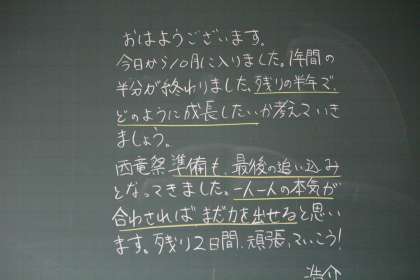 おはようございます。
今日から10月に入りました。1年間の
半分が終わりました。残りの半年で、
どのように成長したいか考えていき
ましょう。
西竜祭準備も、最後の追い込み
となってきました。一人一人の本気が
合わされば、まだ力を出せると思い
ます。残り2日間、頑張っていこう!